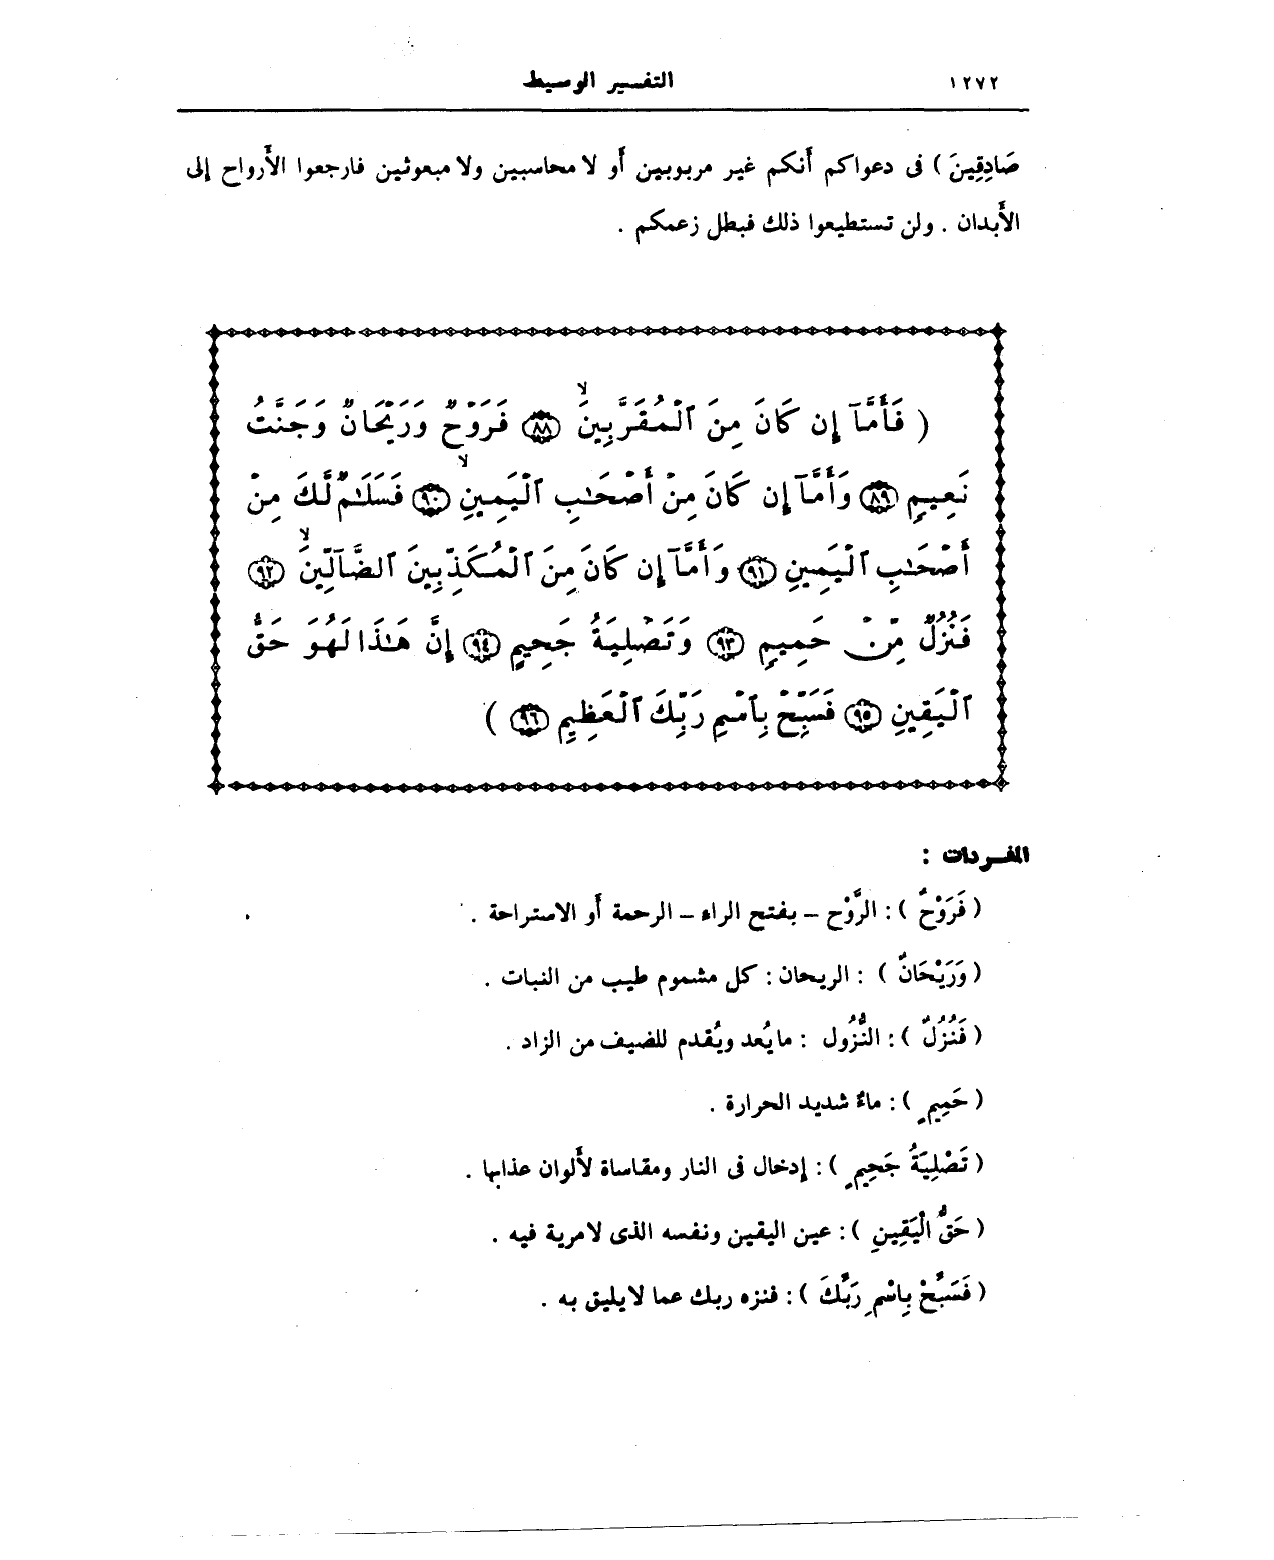 ١٢٧٢
التفسير الوسيط
صَادِقِينَ ) فى دعواكم أَنكم غير مربوبين أَو لا محاسبين ولا مبعوثين فارجعوا الأَرواح إلى
الأَبدان . ولن تستطيعوا ذلك فبطل زعمكم .
( فَأَمَّآ إِن كَانَ مِنَ ٱلْمُقَرَّبِينَۙ ٨٨ فَرَوْحٌ وَرَيْحَانٌ وَجَنَّتُ
نَعِيمٍ ٨٩ وَأَمَّآ إِن كَانَ مِنْ أَصْحَـٰبِ ٱلْيَمِينِۙ ٩٠ فَسَلَـٰمٌ لَّكَ مِنْ
أَصْحَـٰبِ ٱلْيَمِينِ ٩١ وَأَمَّآ إِن كَانَ مِنَ ٱلْمُكَذِّبِينَ ٱلضَّآلِّينَۙ ٩٢
فَنُزُلٌ مِّنْ حَمِيمٍ ٩٣ وَتَصْلِيَةُ جَحِيمٍ ٩٤ إِنَّ هَـٰذَا لَهُوَ حَقُّ
ٱلْيَقِينِ ٩٥ فَسَبِّحْ بِٱسْمِ رَبِّكَ ٱلْعَظِيمِ ٩٦ )
المفردات :
( فَرَوْحٌ ) : الرَّوْح – بفتح الراء – الرحمة أَو الاستراحة .
( وَرَيْحَانٌ ) : الريحان : كل مشموم طيب من النبات .
( فَنُزُلٌ ) : النُّزُول : ما يُعد ويُقدم للضيف من الزاد .
( حَمِيمٍ ) : ماءٌ شديد الحرارة .
( تَصْلِيَةُ جَحِيمٍ ) : إدخال فى النار ومقاساة لأَلوان عذابها .
( حَقُّ الْيَقِينِ ) : عين اليقين ونفسه الذى لا مرية فيه .
( فَسَبِّحْ بِاسْمِ رَبِّكَ ) : فنزه ربك عما لا يليق به .